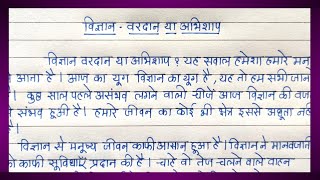 विज्ञान - वरदान या अभिशाप
विज्ञान वरदान या अभिशाप ? यह सवाल हमेशा हमारे मन
आता है । आज का युग विज्ञान का युग है , यह तो हम सभी जान
। कुछ साल पहले असंभव लगने वाली चीजें आज विज्ञान की वज
संभव हुआ है । हमारे जीवन का कोई भी क्षेत्र इससे अछूता नह
है ।
विज्ञान से मनुष्य जीवन काफी आसान हुआ है । विज्ञान ने मानवजाति
को काफी सुविधाएँ प्रदान की है । चाहे वो तेज चलने वाले वाहन